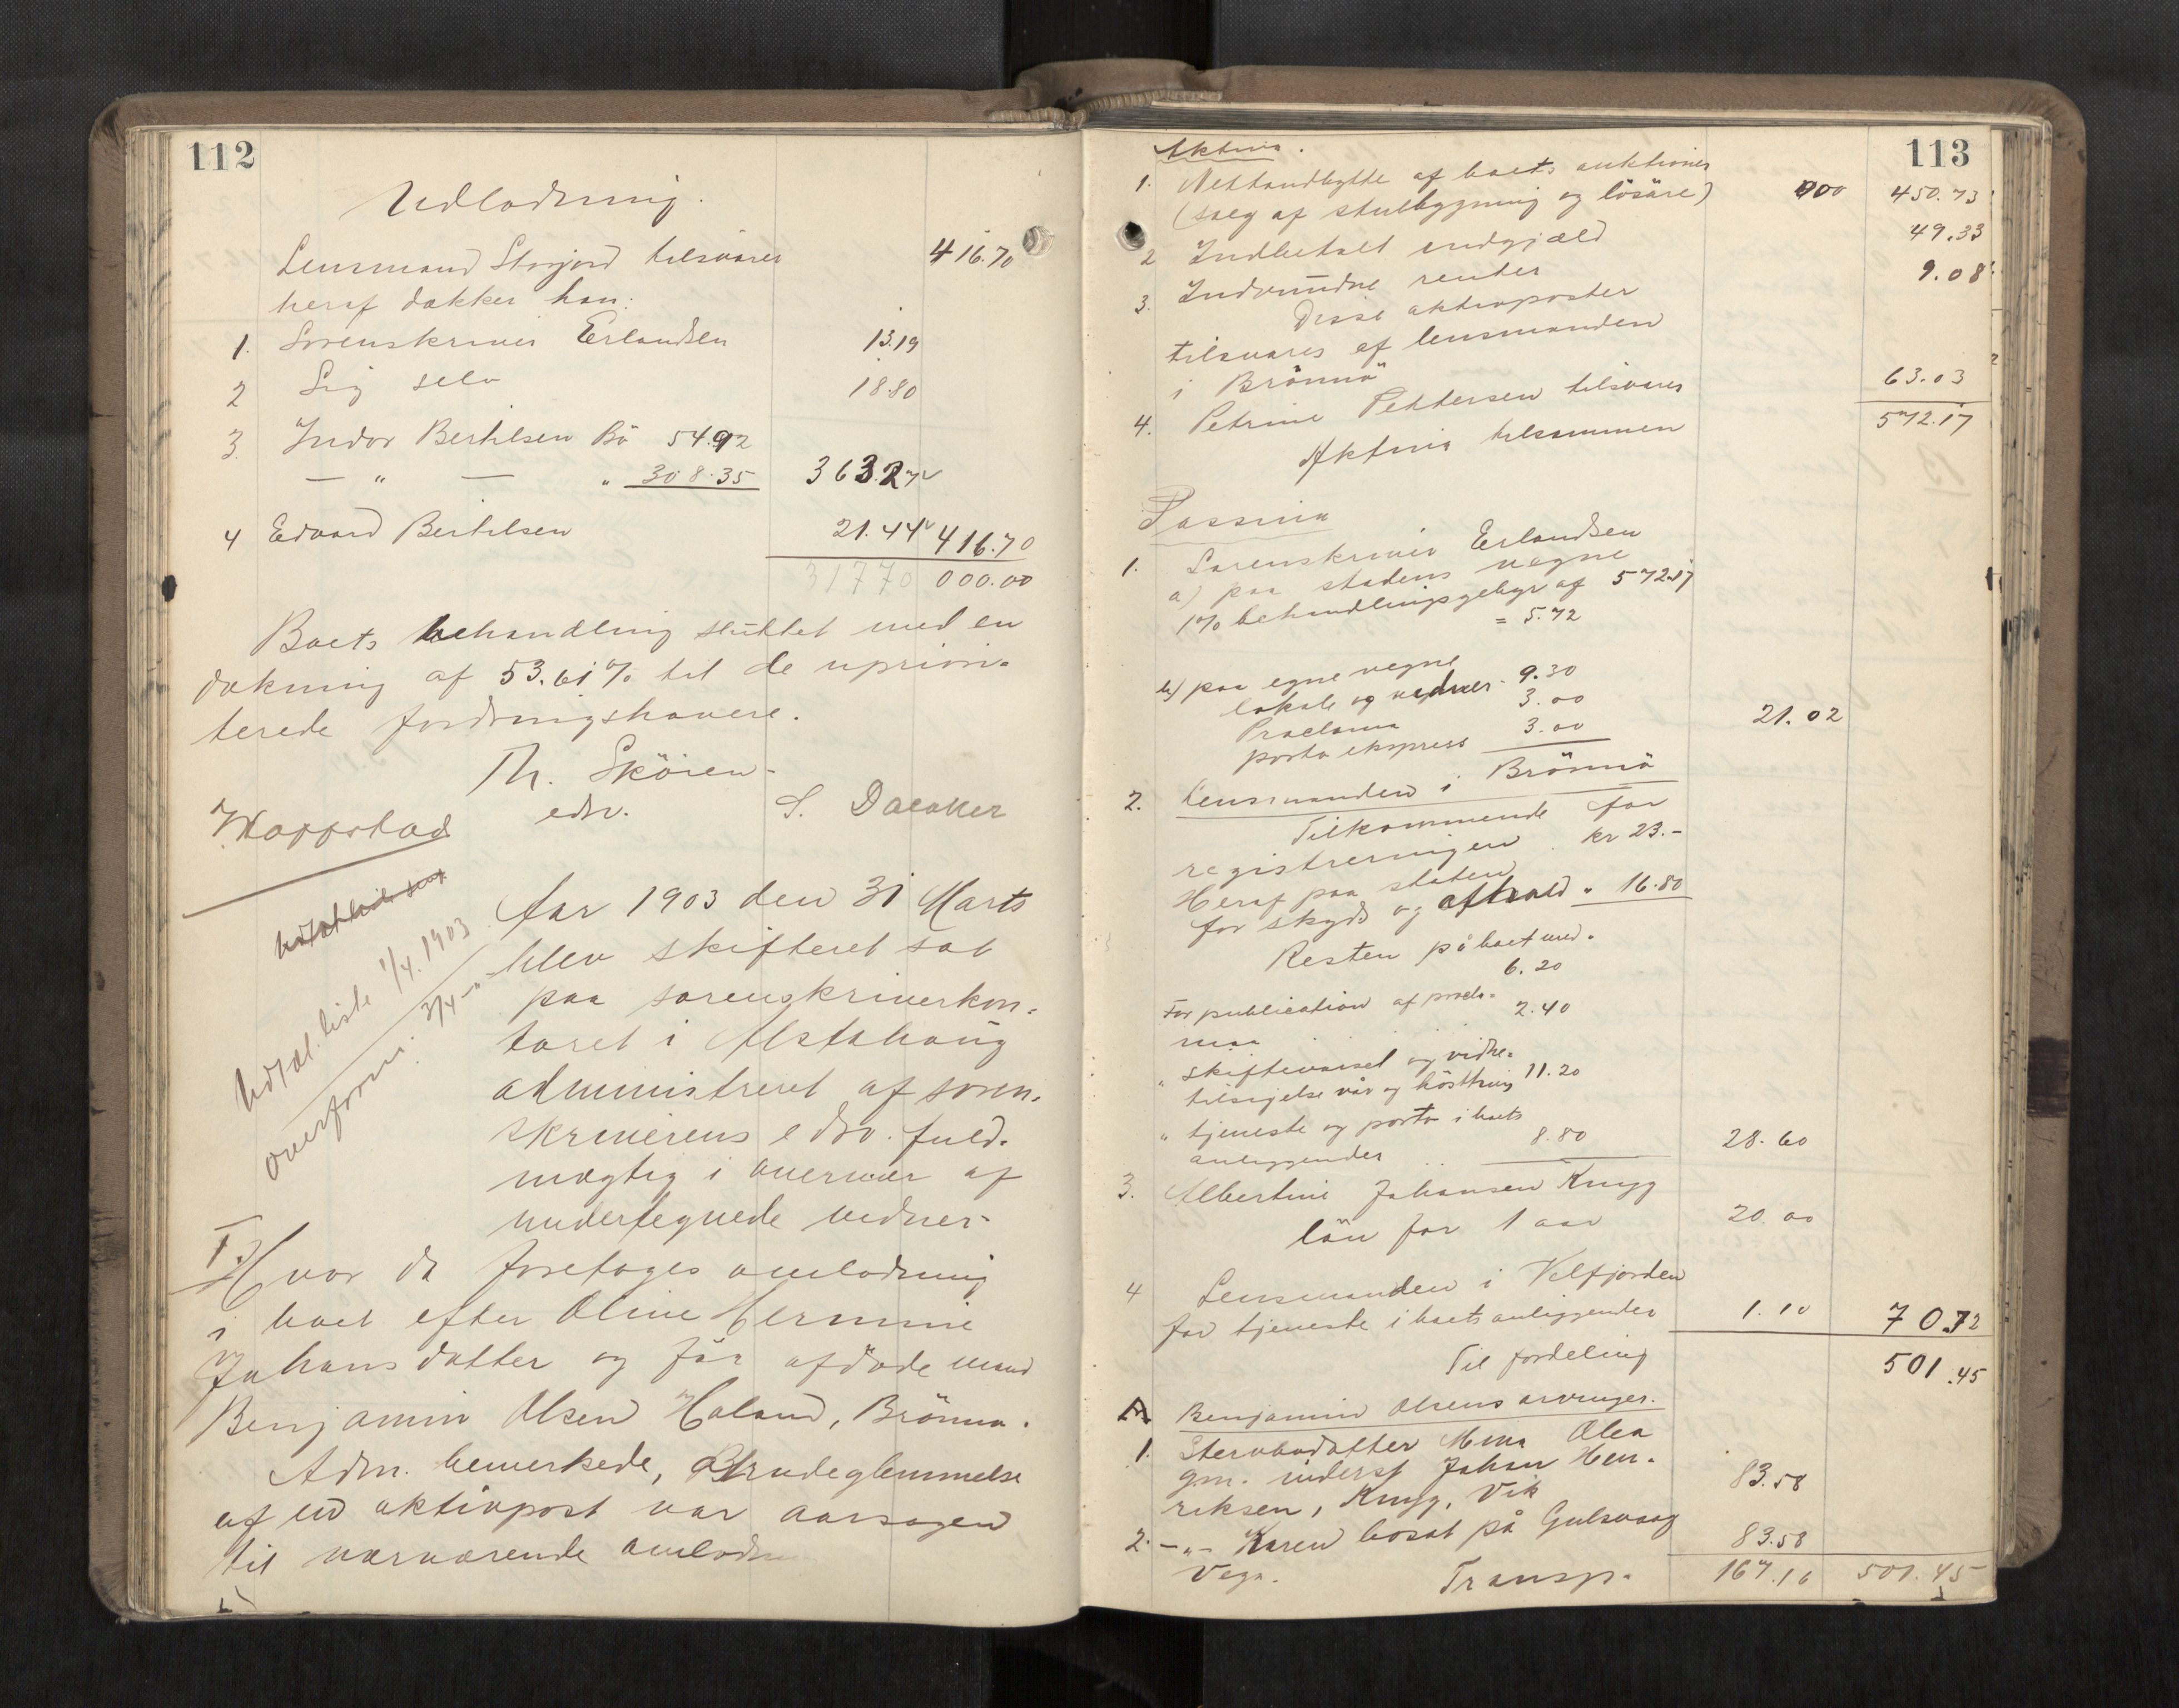 112
Udlodning.
Lensmand Storjord tilsvarer 416.70
heraf dækker han:
1. Sorenskriver Erlandsen 13.19
2 Sig selv 18.80
3. Indor Bertilsen Bö 54.92
— " — " 308.35 363.27
4 Edvard Bertilsen 21.44 416.70
31770 000.00
Boets behandling sluttet med en
dækning af 53.61% til de uprior-
terede fordringshavere.
Th. Sköien
edsv.
S. Daaker
W.Kappstad
Udtal. liste 1/4. 1903
overform. 3/4 - "
Aar 1903 den 31 Marts
blev skifteret sat
paa sorenskriverkon-
toret i Alstahoug
administreret af soren-
skriverens edsv. fuld-
mægtig i overvær af
undertegnede vidner-
I.
Hvor da foretoges omlodning
i boet efter Oline Hermine
Johansdatter og för afdöde mand
Benjamin Olsen Holand, Brönnö.
Adm. bemerkede, at forudeglemmelse
af en aktivpost var aarsagen
til nærværende omlodn
113
Aktiva.
1. Nettoudbytte af boets auktioner
(salg af stuebygning og lösöre) 000 450.73
2 Indbetalt endgjæld 49.33
3. Indvundne renter 9.08
Disse aktivposter
tilsvares af lensmanden
i Brönnö
4. Petrine Pettersen tilsvarer 63.03
Aktiva tilsammen 572.17
Passiva
1. Sorenskriver Erlandsen
a) paa statens vegne
1% behandlingsgebyr af 572.17
= 5.72
b) paa egne vegne
lokale og vidner 9.30
Proclama 3.00
porto ekspress 3.00 21.02
2. Lensmanden i Brönnö
Tilkommende for
registreringen kr 23.-
Heraf paa staten
for skyds og ophold " 16.80
Resten på boet med-
6.20
For publication af procla-
ma 2.40
" skiftevarsel og vidne-
tilsigelse vår og höstting 11.20
" tjeneste og porto i boets
anliggender 8.80 28.60
3. Albertine Johansen Knyg
lön for 1 aar 20.00
4 Lensmanden i Velfjorden
for tjeneste i boets anliggender 1.10 70.72
Til fordeling 501.45
A Benjamin Olsens arvinger.
1. Stervbodatter Mina Olea
gm. inderst Johan Hen-
riksen, Knyg, Vik 83.58
2. - " - Karen bosat på Gulsvaag
Vega. 83.58
Transp. 167.16 501.45